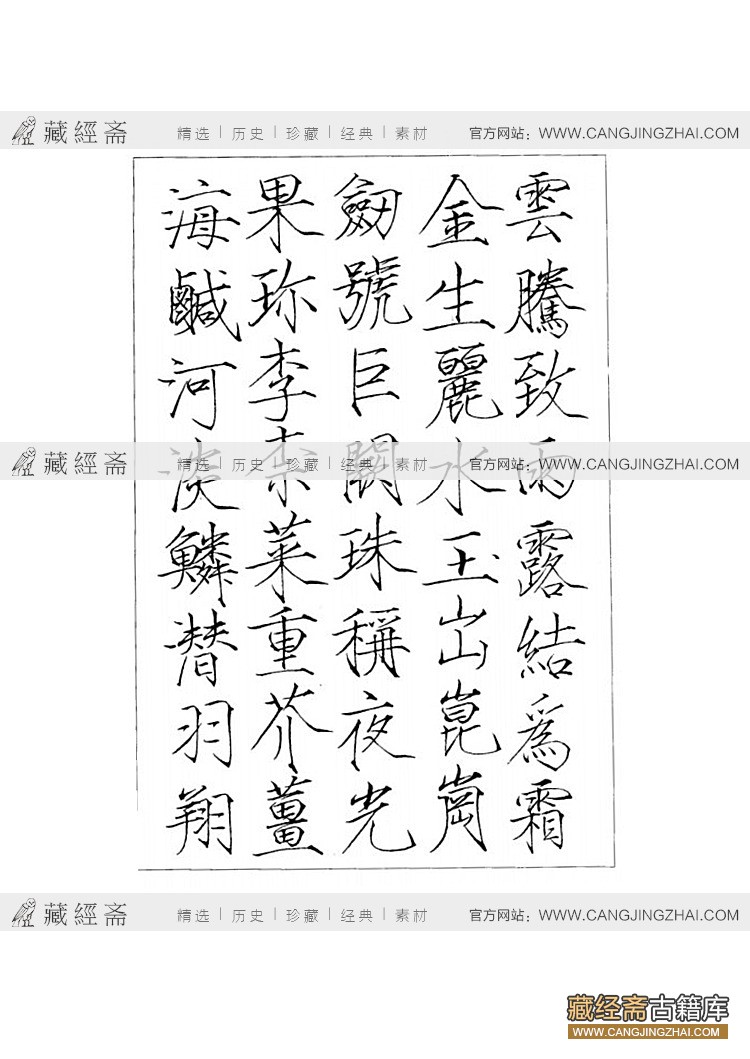 藏經斋 精选 | 历史 | 珍藏 | 经典 | 素材 官方网站：WWW.CANGJINGZHAI.COM
雲騰致雨露結爲霜
金生麗水玉出崑崗
劒號巨闕珠稱夜光
果珎李柰菜重芥薑
海鹹河淡鱗潜羽翔
藏經斋 精选 | 历史 | 珍藏 | 经典 | 素材 官方网站：WWW.CANGJINGZHAI.COM
藏經斋 精选 | 历史 | 珍藏 | 经典 | 素材 官方网站：WWW.CANGJINGZHAI.COM
藏经斋古籍库
WWW.CANGJINGZHAI.COM